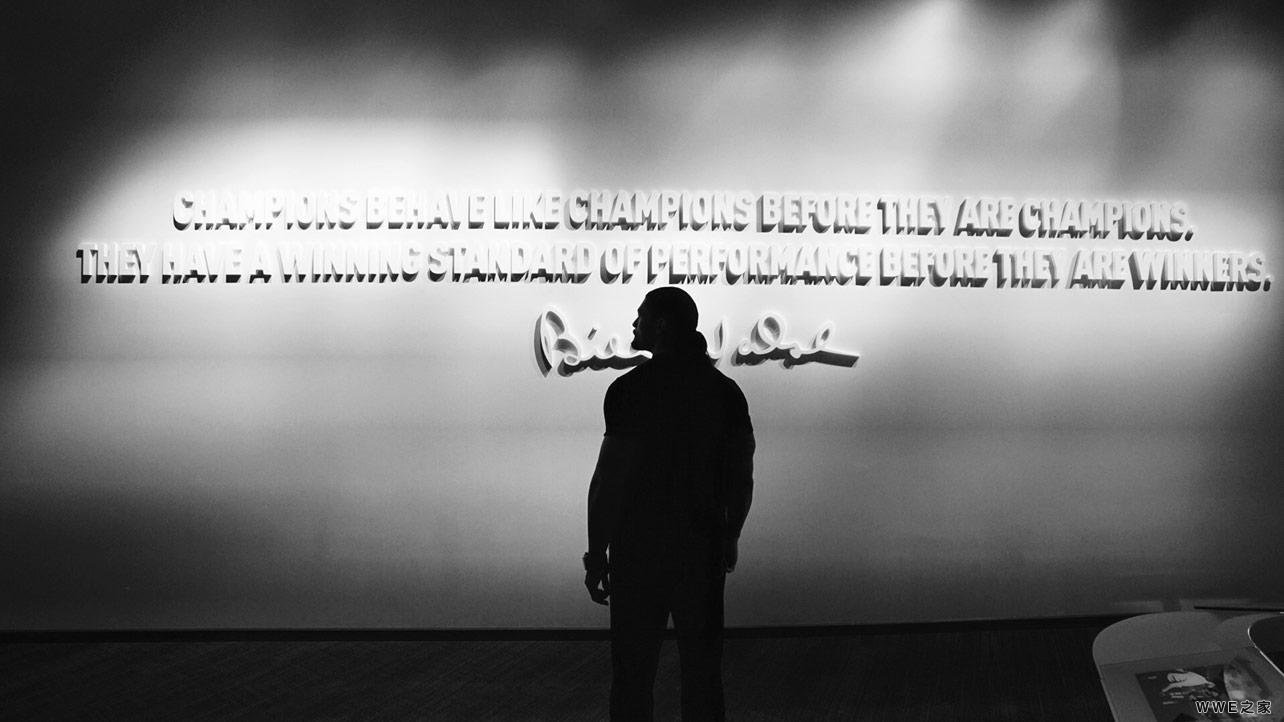 CHAMPIONS BEHAVE LIKE CHAMPIONS BEFORE THEY ARE CHAMPIONS.
THEY HAVE A WINNING STANDARD OF PERFORMANCE BEFORE THEY ARE WINNERS.
Bill Walsh
WWE之家